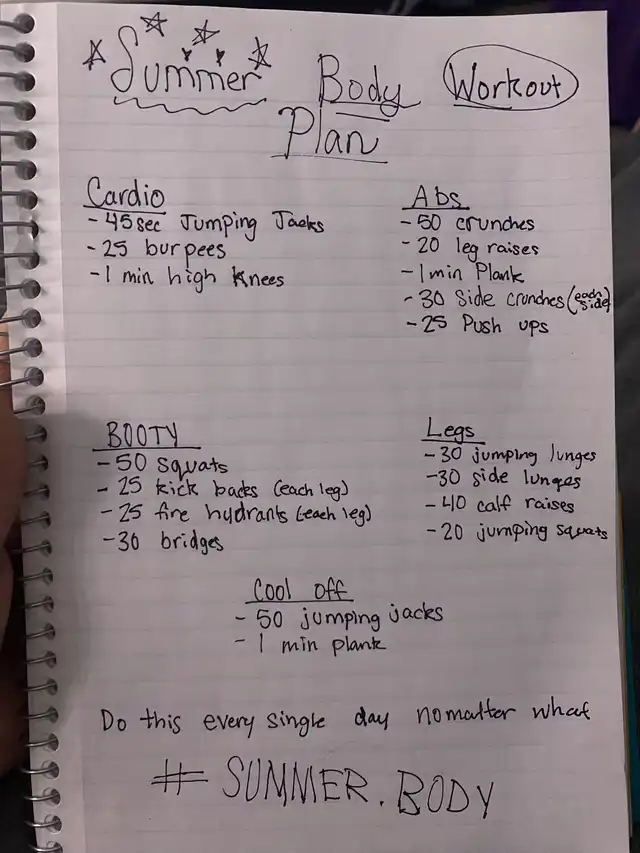 Summer Body Workout
Plan
Cardio
- 45sec Jumping Jacks
- 25 burpees
- 1 min high knees
Abs
- 50 crunches
- 20 leg raises
- 1 min Plank
- 30 Side crunches (each side)
- 25 Push ups
BOOTY
- 50 squats
- 25 kick backs (each leg)
- 25 fire hydrants (each leg)
- 30 bridges
Legs
- 30 jumping lunges
- 30 side lunges
- 40 calf raises
- 20 jumping squats
Cool off
- 50 jumping jacks
- 1 min plank
Do this every single day nomatter what
# SUMMER.BODY